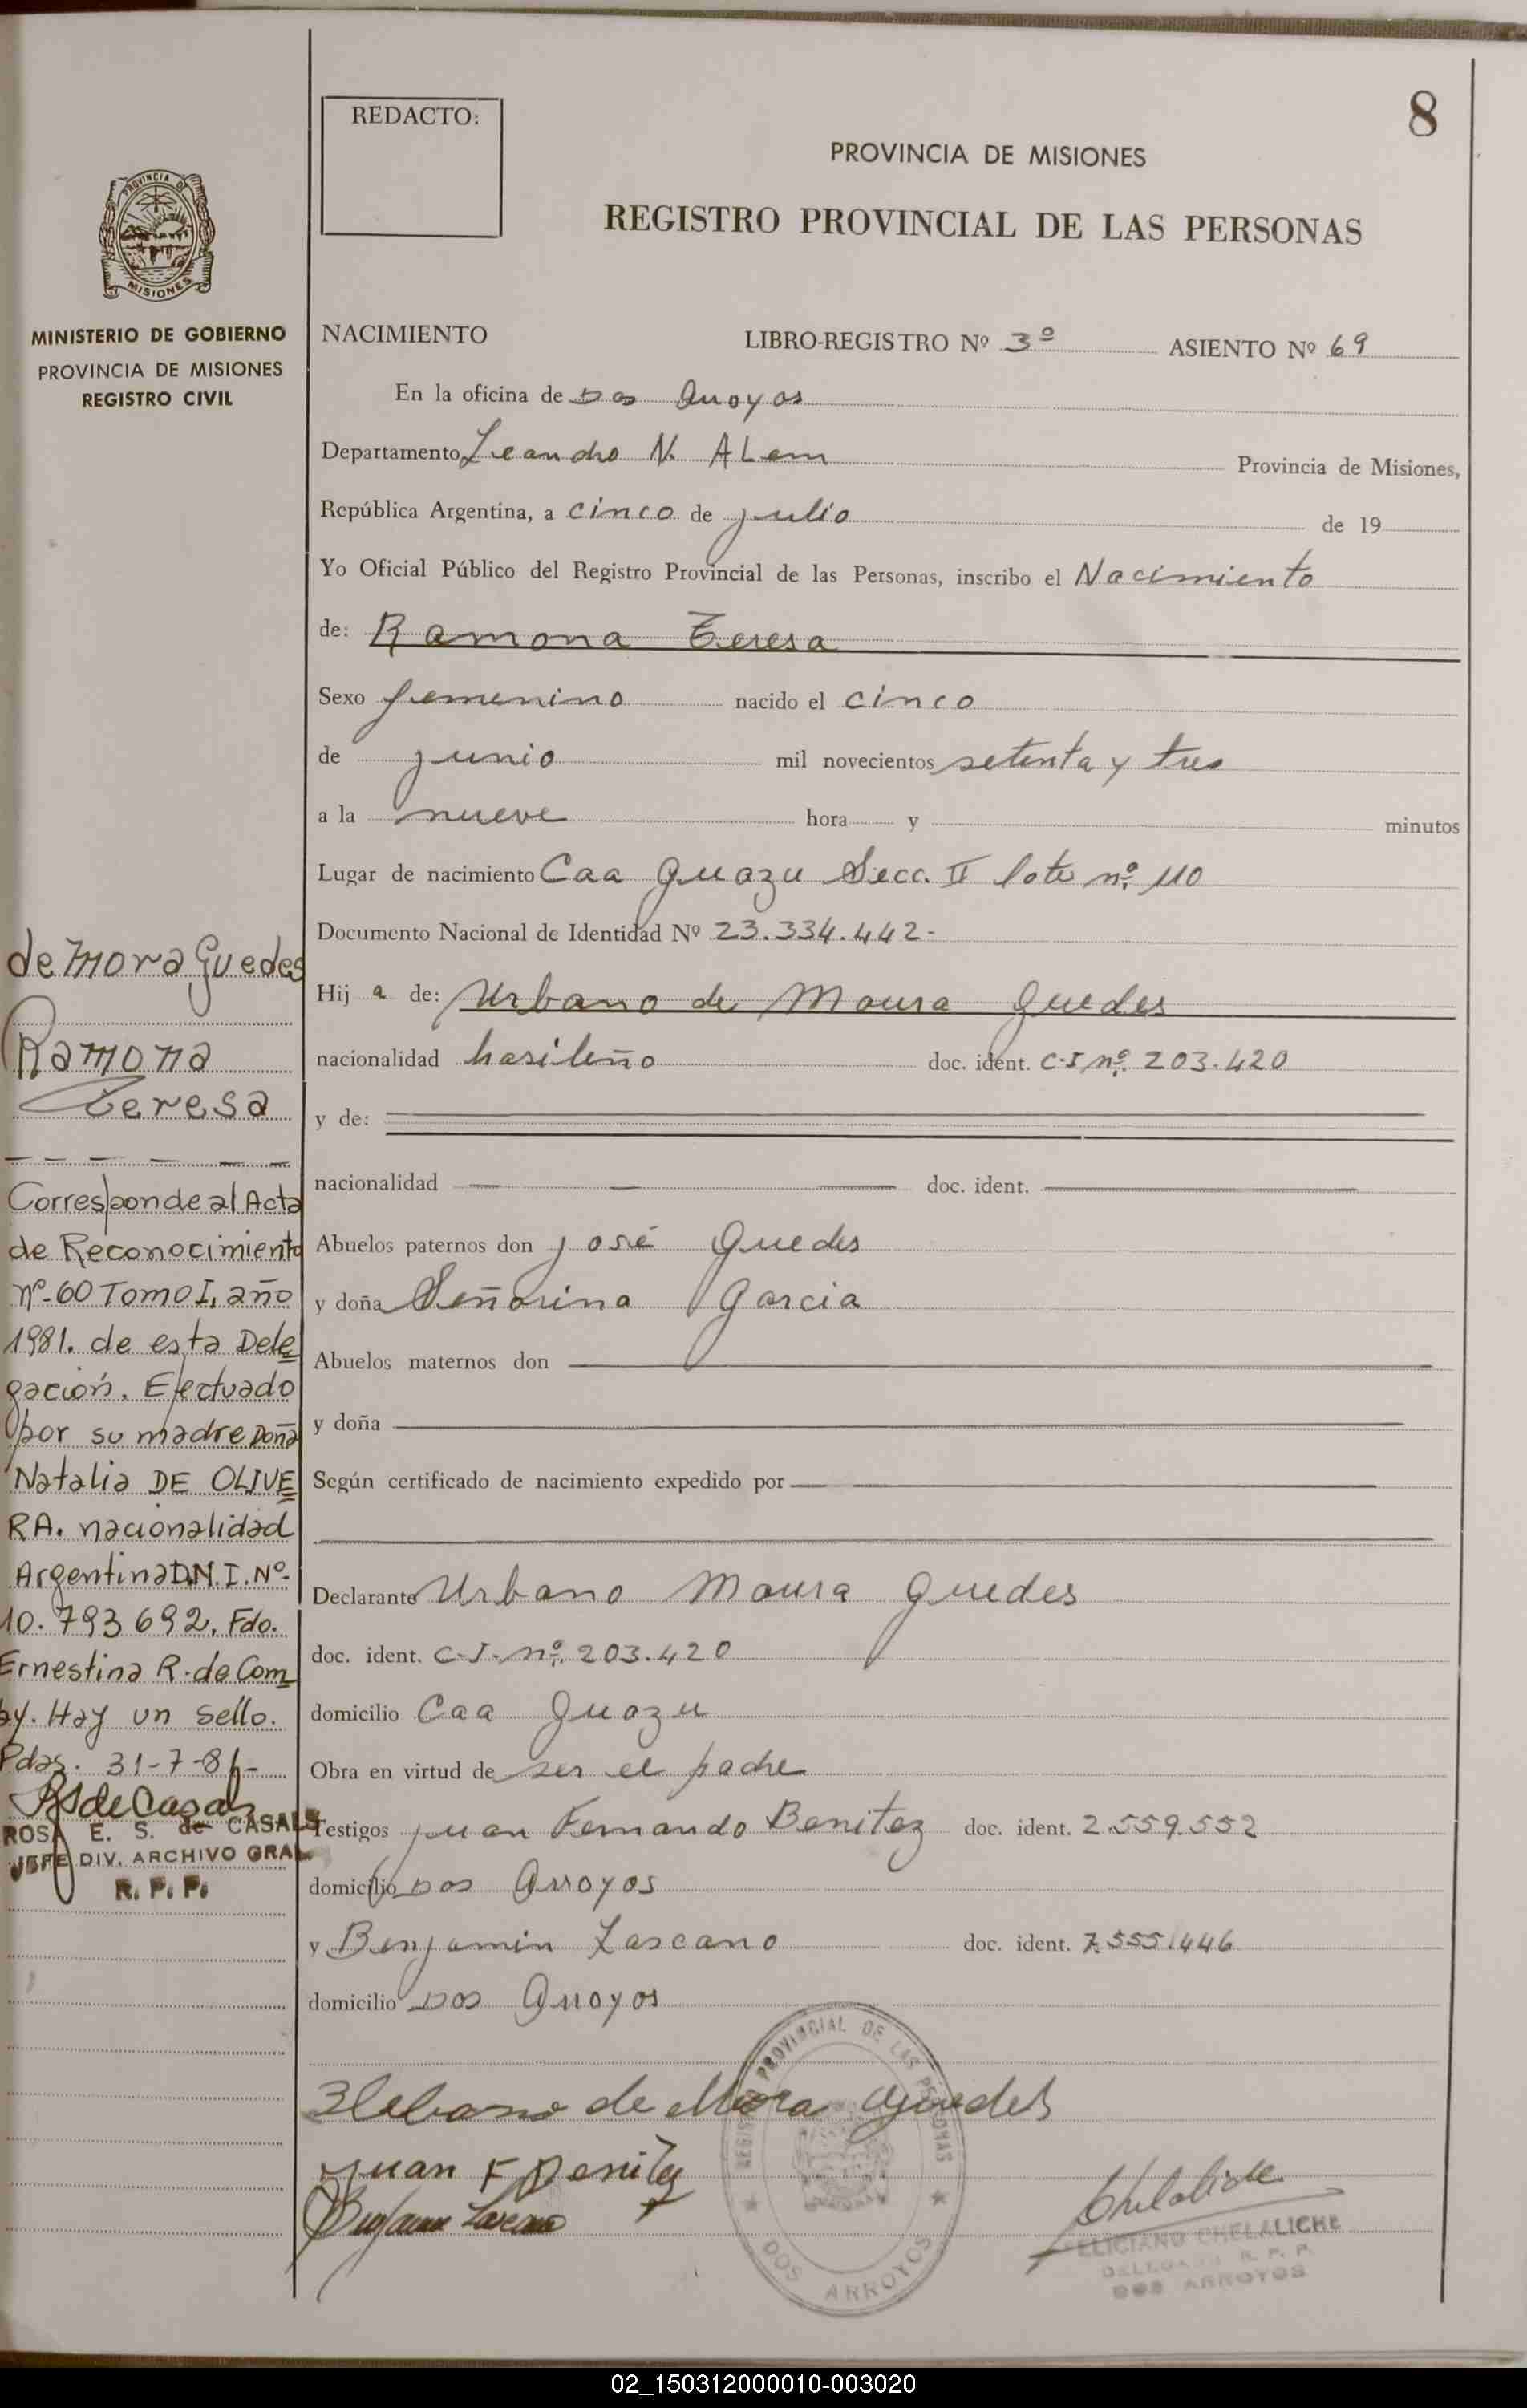 8
REDACTO:
PROVINCIA DE MISIONES
REGISTRO PROVINCIAL DE LAS PERSONAS
PROVINCIA DE
MISIONES
MINISTERIO DE GOBIERNO
PROVINCIA DE MISIONES
REGISTRO CIVIL
NACIMIENTO LIBRO-REGISTRO Nº 3º ASIENTO Nº 69
En la oficina de Dos Arroyos
Departamento Leandro N. ALem Provincia de Misiones,
República Argentina, a cinco de julio de 19
Yo Oficial Público del Registro Provincial de las Personas, inscribo el Nacimiento
de: Ramona Teresa
Sexo femenino nacido el cinco
de junio mil novecientos setenta y tres
a la nueve hora y minutos
Lugar de nacimiento Caa Guazu Secc. II lote nº 110
Documento Nacional de Identidad Nº 23.334.442-
Hij a de: Urbano de Moura Guedes
nacionalidad brasileño doc. ident. C-I nº 203.420
y de:
nacionalidad doc. ident.
Abuelos paternos don José Guedes
y doña Señorina Garcia
Abuelos maternos don
y doña
Según certificado de nacimiento expedido por
Declarante Urbano Moura Guedes
doc. ident. C-I- nº 203.420
domicilio Caa Guazu
Obra en virtud de ser el padre
Testigos Juan Fernando Benitez doc. ident. 2.559.552
domicilio Dos Arroyos
y Benjamin Lascano doc. ident. 7.555.446
domicilio Dos Arroyos
de Mora Guedes
Ramona
Teresa
Corresponde al Acta
de Reconocimiento
nº-60 Tomo I, año
1981. de esta Dele
gación. Efectuado
por su madre Doña
Natalia DE OLIVE
RA. nacionalidad
Argentina D.N.I. Nº-
10.793692. Fdo.
Ernestina R. de Com
by. Hay un sello.
Pdas. 31-7-81-
RSdeCasals
ROSA E. S. de CASALS
JEFE DIV. ARCHIVO GRAL
R. P. P.
de Mora Guedes
Juan F Benitez
Benjamin Lascano
REGISTRO PROVINCIAL DE LAS PERSONAS
DOS ARROYOS
Chelaliche
FELICIANO CHELALICHE
DELEGADO R. P. P.
DOS ARROYOS
02_150312000010-003020